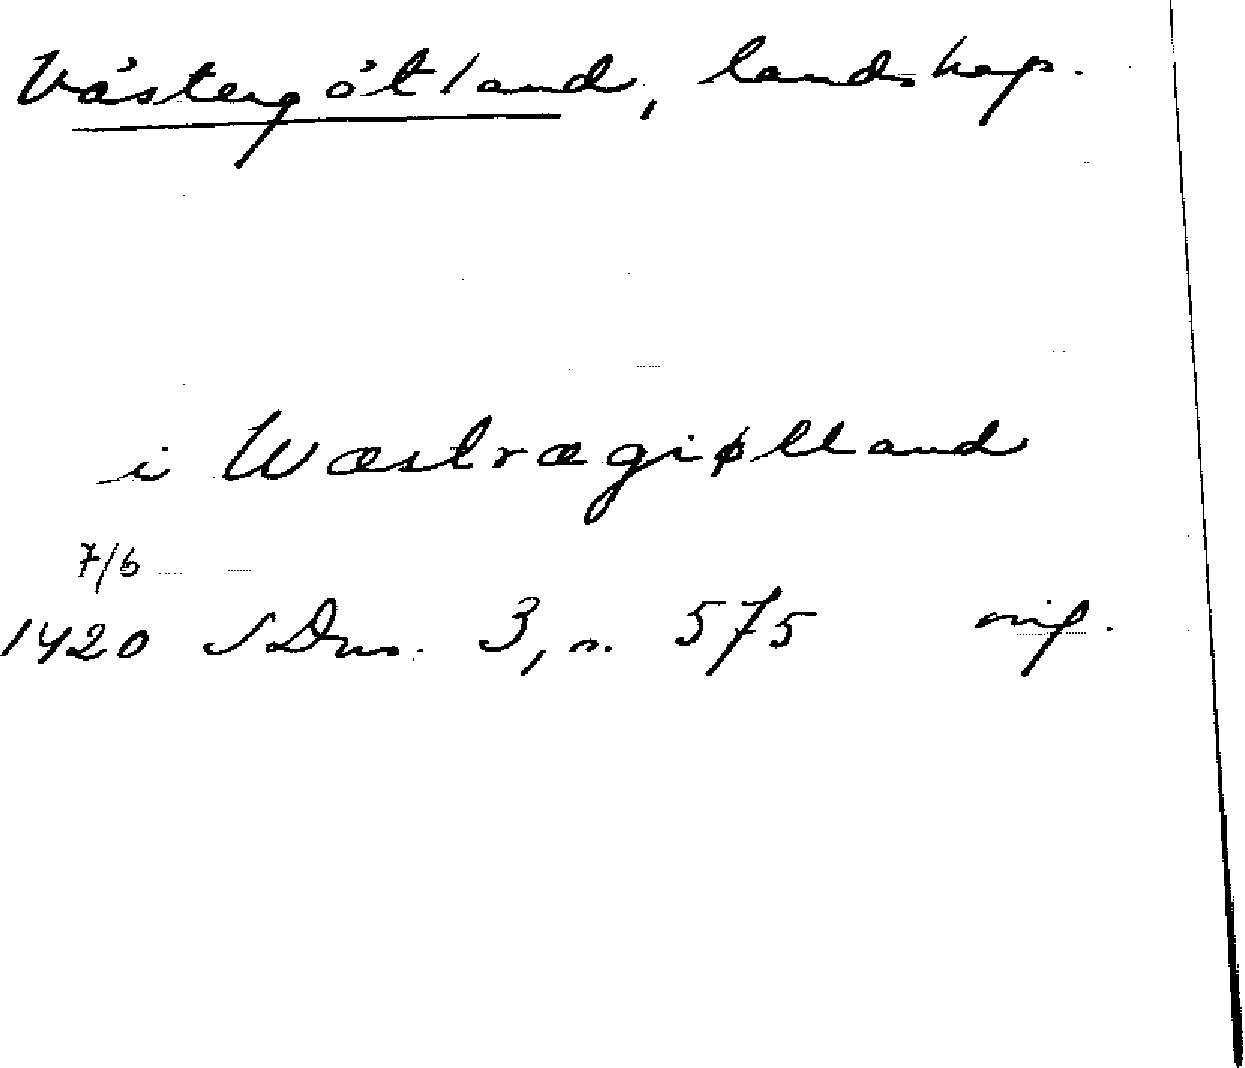 Västergötland, landskap.
i Wæstrægiøtland
7/6
1420 SDns. 3, n. 575 orig.